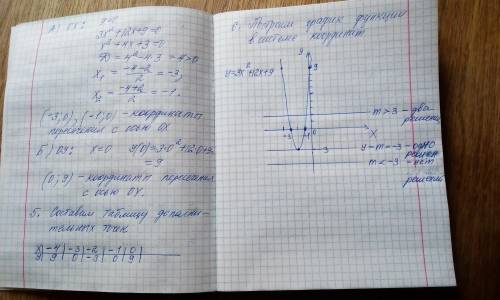 А) OX: y=0
3x²+12x+9=0
x²+4x+3=0
D=4²-4·3=4>0
x₁=(-4-2)/2=-3;
x₂=(-4+2)/2=-1.
(-3;0), (-1;0) - координаты
пересечения с осью OX
Б) OY: x=0 y(0)=3·0²+12·0+9=
=9
(0;9) - координаты пересечения
с осью OY.
5. Составим таблицу дополни-
тельных точек
x|-4|-3|-2|-1|0|
y|9|0|-3|0|9
6. Построим график функции
в системе координат
y
9
y=3x²+12x+9
m>3 - два
решения
X
-3
-1
0
-3
y=m=-3 - одно
решен
m<-3 - нет
решений